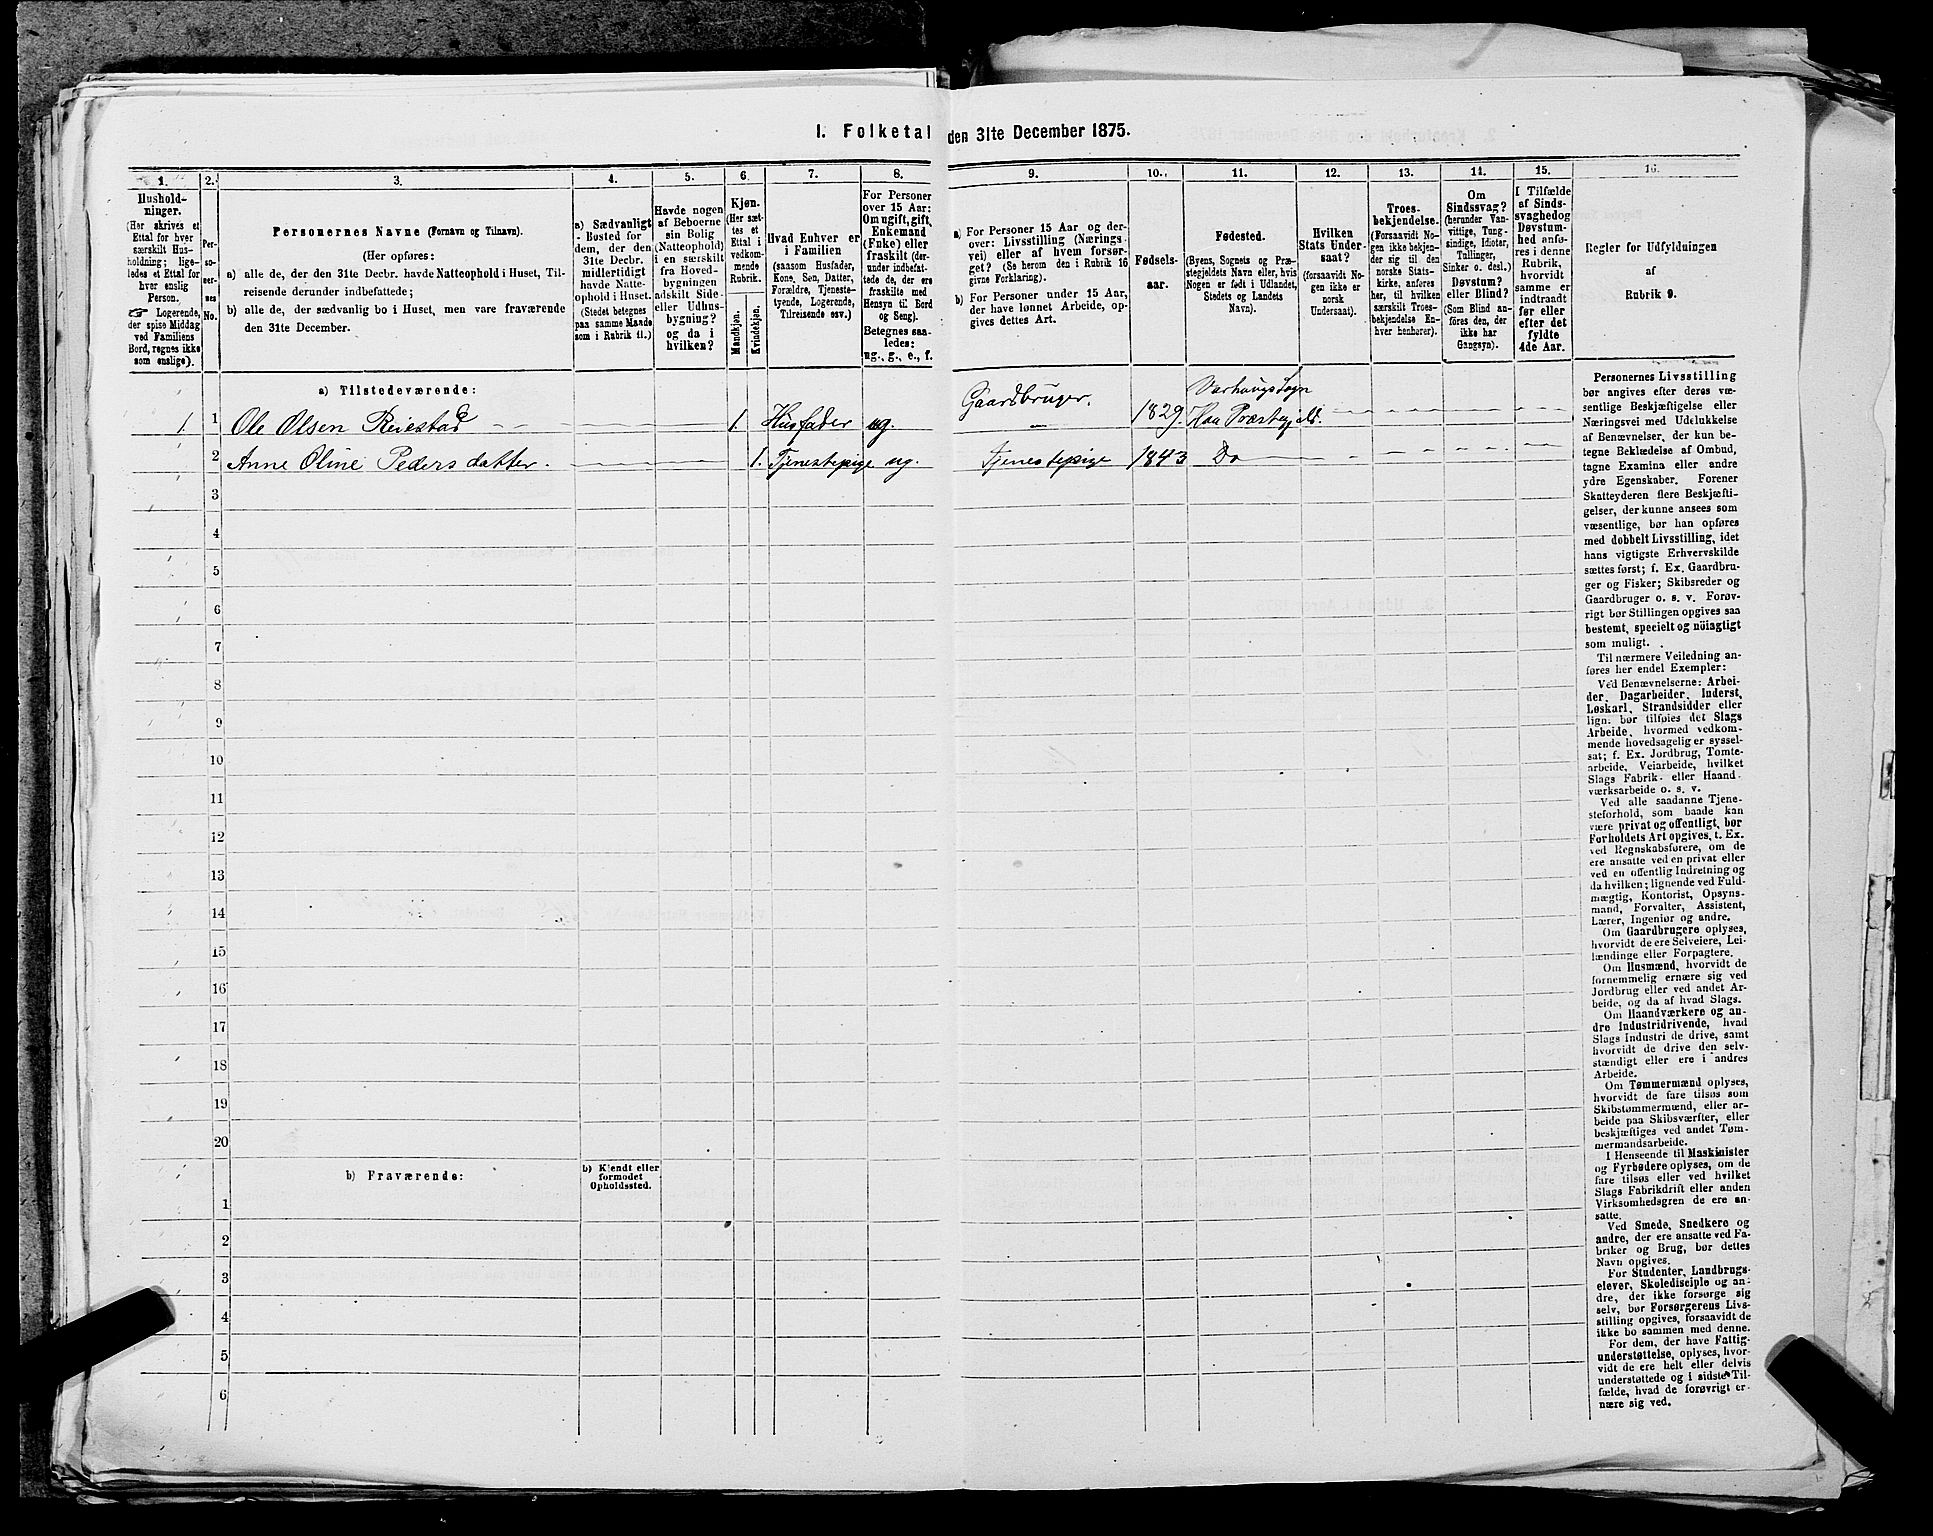 I. Folketal den 31te December 1875.
1. 2. 3. 4. 5. 6. 7. 8. 9. 10. 11. 12. 13. 14. 15. 16.
Hushold-
ninger.
(Her skrives et
Ettal for hver
særskilt Hus-
holdning; lige-
ledes et Ettal for
hver enslig
Person.
☞ Logerende,
der spise Middag
ved Familiens
Bord, regnes ikke
som enslige).
Per-
so-
ner-
nes
No.
Personernes Navne (Fornavn og Tilnavn).
(Her opføres:
a) alle de, der den 31te Decbr. havde Natteophold i Huset, Til-
reisende derunder indbefattede;
b) alle de, der sædvanlig bo i Huset, men vare fraværende
den 31te December.
a) Sædvanligt
Bosted for
dem, der den
31te Decbr.
midlertidigt
havde Natte-
ophold i Huset.
(Stedet betegnes
paa samme Maade
som i Rubrik 11.)
Havde nogen
af Beboerne
sin Bolig
(Natteophold)
i en særskilt
fra Hoved-
bygningen
adskilt Side-
eller Udhus-
bygning?
og da i
hvilken?
Kjøn.
(Her sæt-
tes et
Ettal i
vedkom-
mende
Rubrik.
Mandkjøn.
Kvindekjøn.
Hvad Enhver er
i Familien
(saasom Husfader,
Kone, Søn, Datter,
Forældre, Tjeneste-
tyende, Logerende,
Tilreisende osv.)
For Personer
over 15 Aar:
Om ugift, gift,
Enkemand
(Enke) eller
fraskilt (der-
under indbefat-
tede de, der ere
fraskilte med
Hensyn til Bord
og Seng).
Betegnes saa-
ledes:
ug., g., e., f.
a) For Personer 15 Aar og der-
over: Livsstilling (Nærings-
vei) eller af hvem forsør-
get? (Se herom den i Rubrik 16
givne Forklaring).
b) For Personer under 15 Aar,
der have lønnet Arbeide, op-
gives dettes Art.
Fødsels-
aar.
Fødested.
(Byens, Sognets og Præ-
stegjeldets Navn eller, hvis
Nogen er født i Udlandet,
Stedets og Landets
Navn).
Hvilken
Stats Under-
saat?
(forsaavidt No-
gen ikke er
norsk
Undersaat).
Troes-
bekjendelse.
(Forsaavidt No-
gen ikke bekjen-
der sig til den
norske Stats-
kirke, anføres
her, til hvilken
særskilt Troes-
bekjendelse En-
hver henhører).
Om
Sindssvag?
(herunder Van-
vittige, Tung-
sindige, Idioter,
Tullinger,
Sinker o. desl.)
Døvstum?
eller Blind?
(Som Blind an-
føres den, der
ikke har
Gangsyn).
I Tilfælde
af Sinds-
svaghed og
Døvstum-
hed anfø-
res i denne
Rubrik,
hvorvidt
samme er
indtraadt
før eller
efter det
fyldte
4de Aar.
Regler for Udfyldningen
af
Rubrik 9.
a) Tilstedeværende:
1 1 Ole Olsen Reiestad 1. Husfader ug. Gaardbruger. 1829. Varhaug Sogn
Haa Præstegjeld.
2 Anne Oline Pedersdatter. 1. Tjenestepige ug. Tjenestepige 1843 Do
3
4
5
6
7
8
9
10
11
12
13
14
15
16
17
18
19
20
b) Fraværende:
b) Kjendt eller
formodet
Opholdssted.
1
2
3
4
5
6
Personernes Livsstilling
bør angives efter deres væ-
sentlige Beskjæftigelse eller
Næringsvei med Udelukkelse
af Benævnelser, der kun be-
tegne Beklædelse af Ombud,
tagne Examina eller andre
ydre Egenskaber. Forener
Skatteyderen flere Beskjæfti-
gelser, der kunne ansees som
væsentlige, bør han opføres
med dobbelt Livsstilling, idet
hans vigtigste Erhvervskilde
sættes først; f. Ex. Gaardbru-
ger og Fisker; Skibsreder og
Gaardbruger o. s. v. Forøv-
rigt bør Stillingen opgives saa
bestemt, specielt og nøiagtigt
som muligt.
Til nærmere Veiledning an-
føres her endel Exempler:
Ved Benævnelserne: Arbei-
der, Dagarbeider, Inderst,
Løskarl, Strandsidder eller
lign. bør tilføies det Slags
Arbeide, hvormed vedkom-
mende hovedsagelig er syssel-
sat; f. Ex. Jordbrug, Tomte-
arbeide, Veiarbeide, hvilket
Slags Fabrik- eller Haand-
værksarbeide o. s. v.
Ved alle saadanne Tjene-
steforhold, som baade kan
være privat og offentligt, bør
Forholdets Art opgives, t. Ex.
ved Regnskabsførere, om de
ere ansatte ved en privat eller
ved en offentlig Indretning og
da hvilken; lignende ved Fuld-
mægtig, Kontorist, Opsyns-
mand, Forvalter, Assistent,
Lærer, Ingeniør og andre.
Om Gaardbrugere oplyses,
hvorvidt de ere Selveiere, Lei-
lændinge eller Forpagtere.
Om Husmænd, hvorvidt de
fornemmelig ernære sig ved
Jordbrug eller ved andet Ar-
beide, og da af hvad Slags.
Om Haandværkere og an-
dre Industridrivende, hvad
Slags Industri de drive, samt
hvorvidt de drive den selv-
stændigt eller ere i andres
Arbeide.
Om Tømmermænd oplyses,
hvorvidt de fare tilsøs som
Skibstømmermænd, eller ar-
beide paa Skibsværfter, eller
beskjæftiges ved andet Tøm-
mermandsarbeide.
I Henseende til Maskinister
og Fyrbødere oplyses, om de
fare tilsøs eller ved hvilket
Slags Fabrikdrift eller anden
Virksomhedsgren de ere an-
satte.
Ved Smede, Snedkere og
andre, der ere ansatte ved Fa-
briker og Brug, bør dettes
Navn opgives.
For Studenter, Landbrugs-
elever, Skoledisciple og an-
dre, der ikke forsørge sig
selv, bør Forsørgerens Livs-
stilling opgives, forsaavidt de
ikke bo sammen med denne.
For dem, der have Fattig-
understøttelse, oplyses, hvor-
vidt de ere helt eller delvis
understøttede og i sidste Til-
fælde, hvad de forøvrigt er-
nære sig ved.